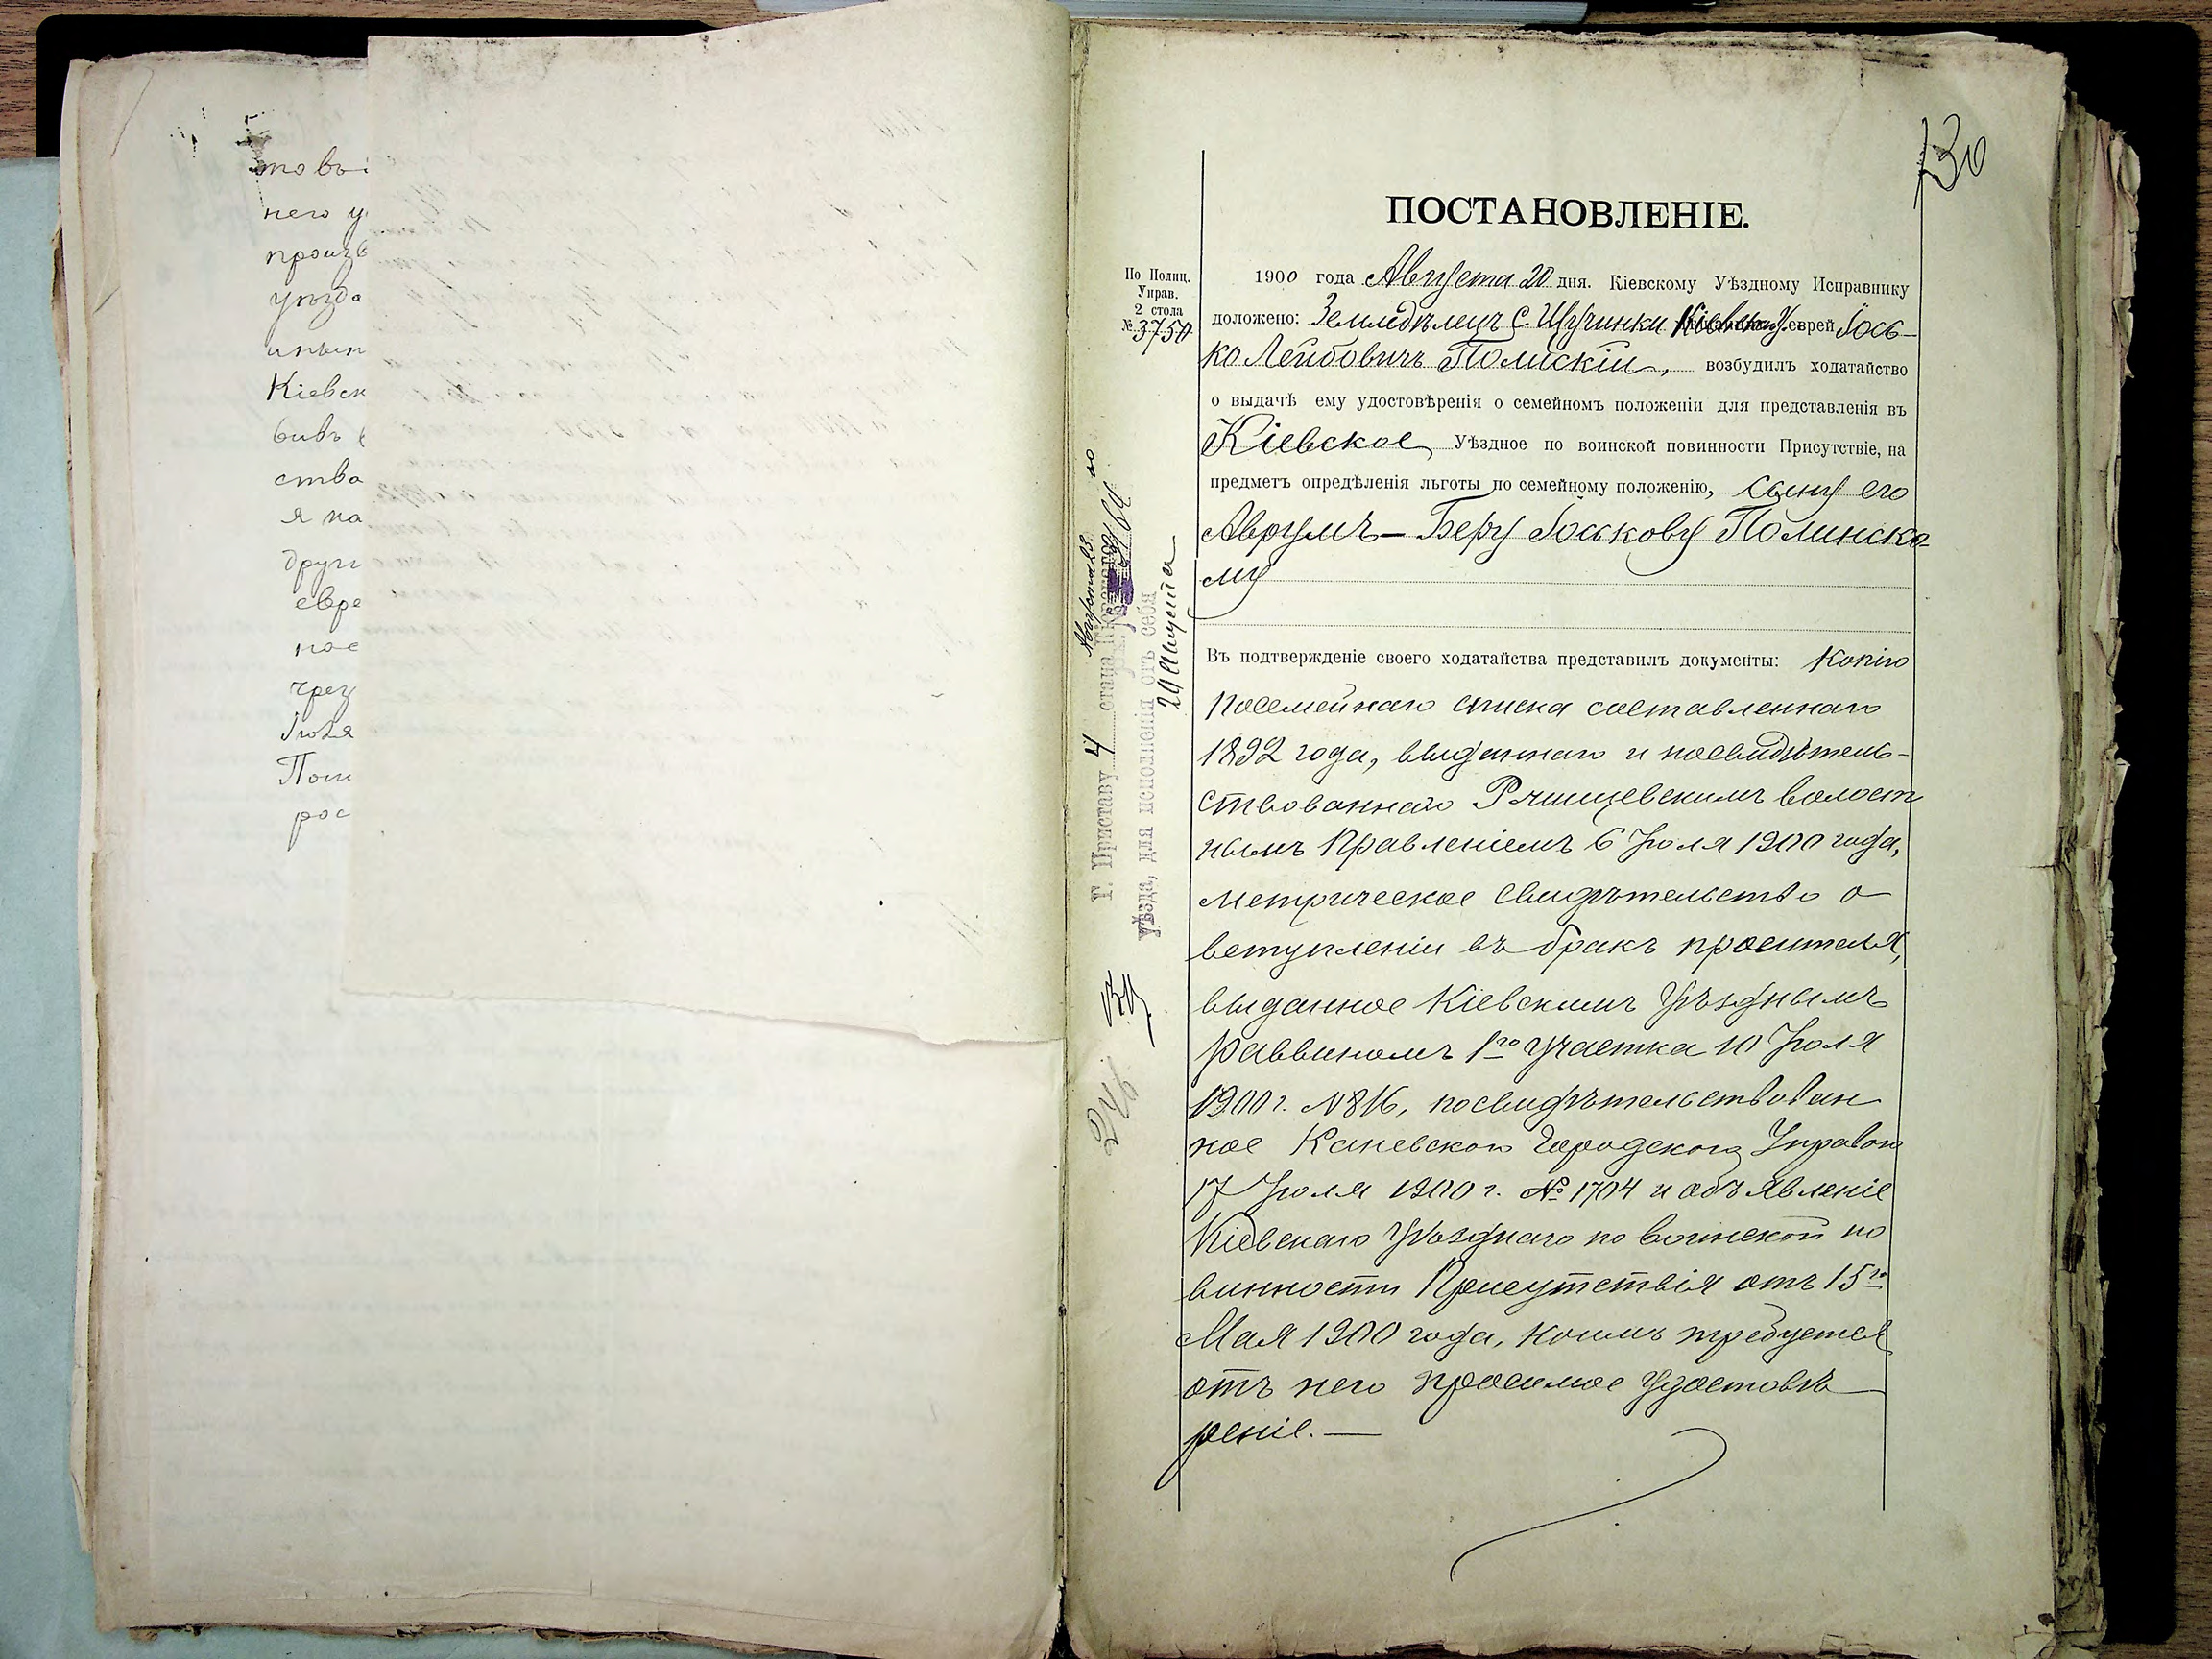 то въ
него у
произв
уѣзда
Кіевск
вивъ
ства
я на
други
евре
пое
чрез
Іюля
рос
730
ПОСТАНОВЛЕНІЕ.
По Полиц.
Управ.
2 стола
№ 3750
1900 года Августа 20 дня. Кіевскому Уѣздному Исправнику
доложено: Земледѣлецъ с. Щучинки Кіевск. У. еврей Іось-
ко Лейбовичъ Полискій, возбудилъ ходатайство
о выдачѣ ему удостовѣренія о семейномъ положеніи для представленія въ
Кіевское Уѣздное по воинской повинности Присутствіе, на
предметъ опредѣленія льготы по семейному положенію, сыну его
Аврумъ-Беру Іоськову Полинско-
му
Въ подтвержденіе своего ходатайства представилъ документы: Копію
посемейнаго списка составленнаго
1892 года, выданнаго и посвидѣтель-
ствованнаго Ржищевскимъ волост
нымъ Правленіемъ 6 Іюля 1900 года,
метрическое свидѣтельство о
вступленіи въ бракъ просителя,
выданное Кіевскимъ Уѣзднымъ
раввиномъ 1го участка 10 Іюля
1900 г. № 816, посвидѣтельствован
ное Каневскою Городскою Управою
17 Іюля 1900 г. № 1704 и объявленіе
Кіевскаго Уѣзднаго по воинской по
винности Присутствія отъ 15го
Мая 1900 года, коимъ требуется
отъ него просимое удостовѣ
реніе. —
Г. Приставу 4 стана Кіевскаго
Уѣзда, для исполненія отъ себя
29 Августа
Августа 23
246